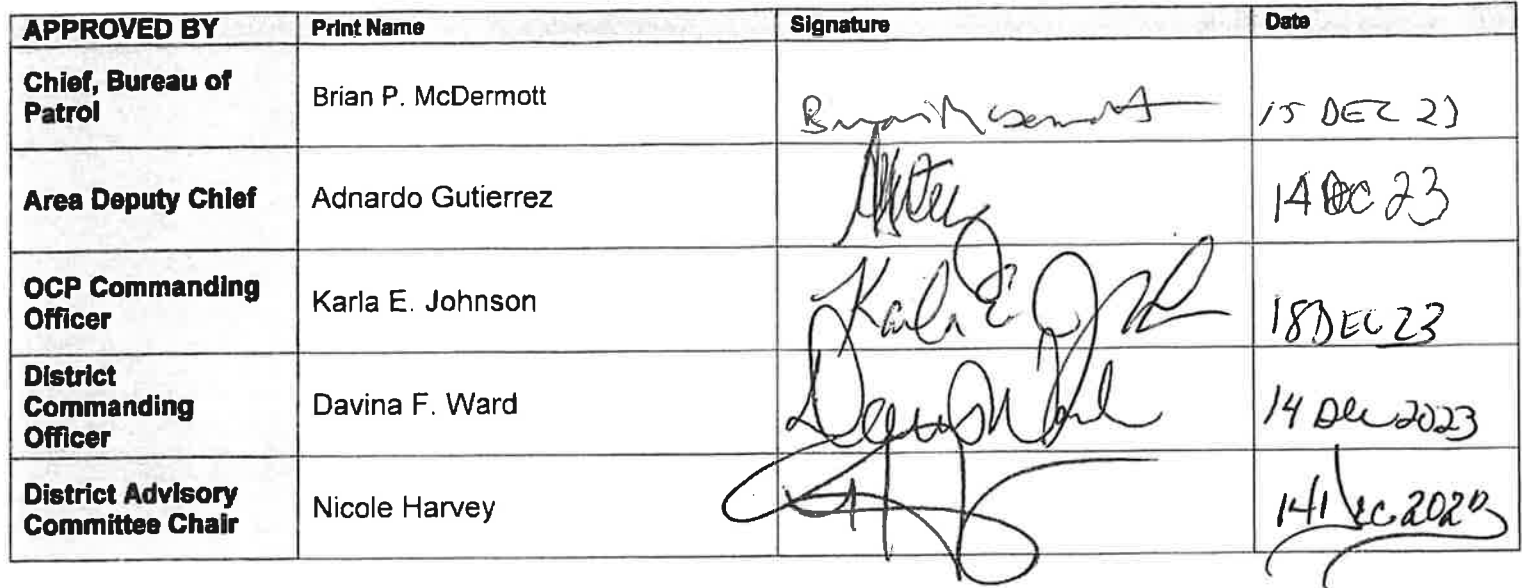 APPROVED BY Print Name Signature Date
Chief, Bureau of
Patrol
Brian P. McDermott
15 DEC 23
Area Deputy Chief Adnardo Gutierrez
14 DEC 23
OCP Commanding
Officer
Karla E. Johnson Karla E J 18 DEC 23
District
Commanding
Officer
Davina F. Ward
14 Dec 2023
District Advisory
Committee Chair
Nicole Harvey
14 Dec 2023